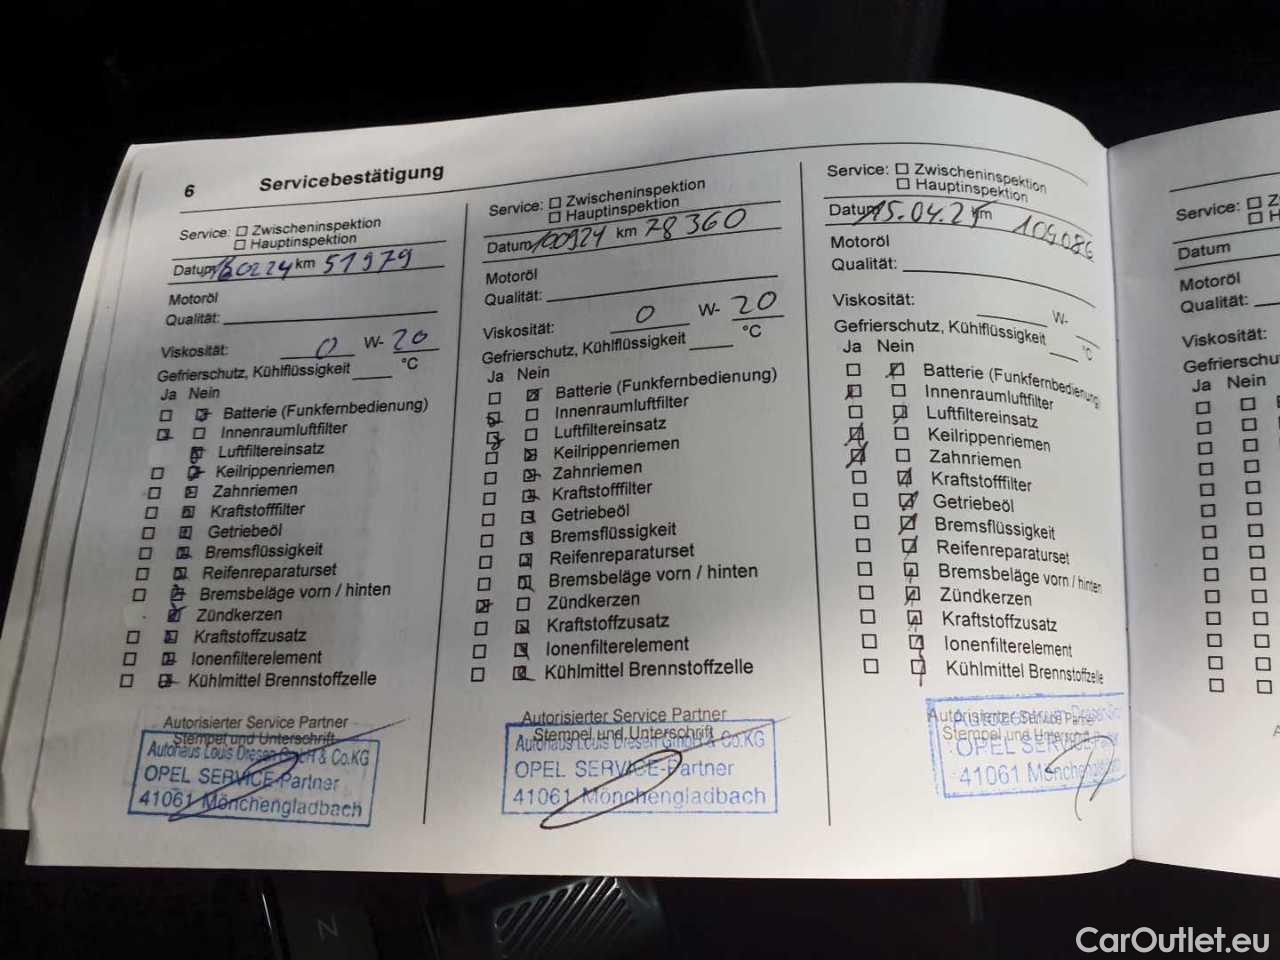 6 Servicebestätigung
Service: Zwischeninspektion
Hauptinspektion
Datum 160224 km 51979
Motoröl
Qualität:
Viskosität: 0 W- 20
Gefrierschutz, Kühlflüssigkeit °C
Ja Nein
Batterie (Funkfernbedienung)
Innenraumluftfilter
Luftfiltereinsatz
Keilrippenriemen
Zahnriemen
Kraftstofffilter
Getriebeöl
Bremsflüssigkeit
Reifenreparaturset
Bremsbeläge vorn / hinten
Zündkerzen
Kraftstoffzusatz
Ionenfilterelement
Kühlmittel Brennstoffzelle
Autorisierter Service Partner
Stempel und Unterschrift
Autohaus Louis Dresen GmbH & Co.KG
OPEL SERVICE-Partner
41061 Mönchengladbach
Service: Zwischeninspektion
Hauptinspektion
Datum 100924 km 78360
Motoröl
Qualität:
Viskosität: 0 W- 20
Gefrierschutz, Kühlflüssigkeit °C
Ja Nein
Batterie (Funkfernbedienung)
Innenraumluftfilter
Luftfiltereinsatz
Keilrippenriemen
Zahnriemen
Kraftstofffilter
Getriebeöl
Bremsflüssigkeit
Reifenreparaturset
Bremsbeläge vorn / hinten
Zündkerzen
Kraftstoffzusatz
Ionenfilterelement
Kühlmittel Brennstoffzelle
Autorisierter Service Partner
Stempel und Unterschrift
Autohaus Louis Dresen GmbH & Co.KG
OPEL SERVICE-Partner
41061 Mönchengladbach
Service: Zwischeninspektion
Hauptinspektion
Datum 15.04.25 km 105086
Motoröl
Qualität:
Viskosität: W-
Gefrierschutz, Kühlflüssigkeit °C
Ja Nein
Batterie (Funkfernbedienung)
Innenraumluftfilter
Luftfiltereinsatz
Keilrippenriemen
Zahnriemen
Kraftstofffilter
Getriebeöl
Bremsflüssigkeit
Reifenreparaturset
Bremsbeläge vorn / hinten
Zündkerzen
Kraftstoffzusatz
Ionenfilterelement
Kühlmittel Brennstoffzelle
Autorisierter Service Partner
Stempel und Unterschrift
OPEL SERVICE
41061 Mönchengladbach
Service:
Datum
Motoröl
Qualität:
Viskosität:
Gefrierschu
Ja Nein
N
CarOutlet.eu